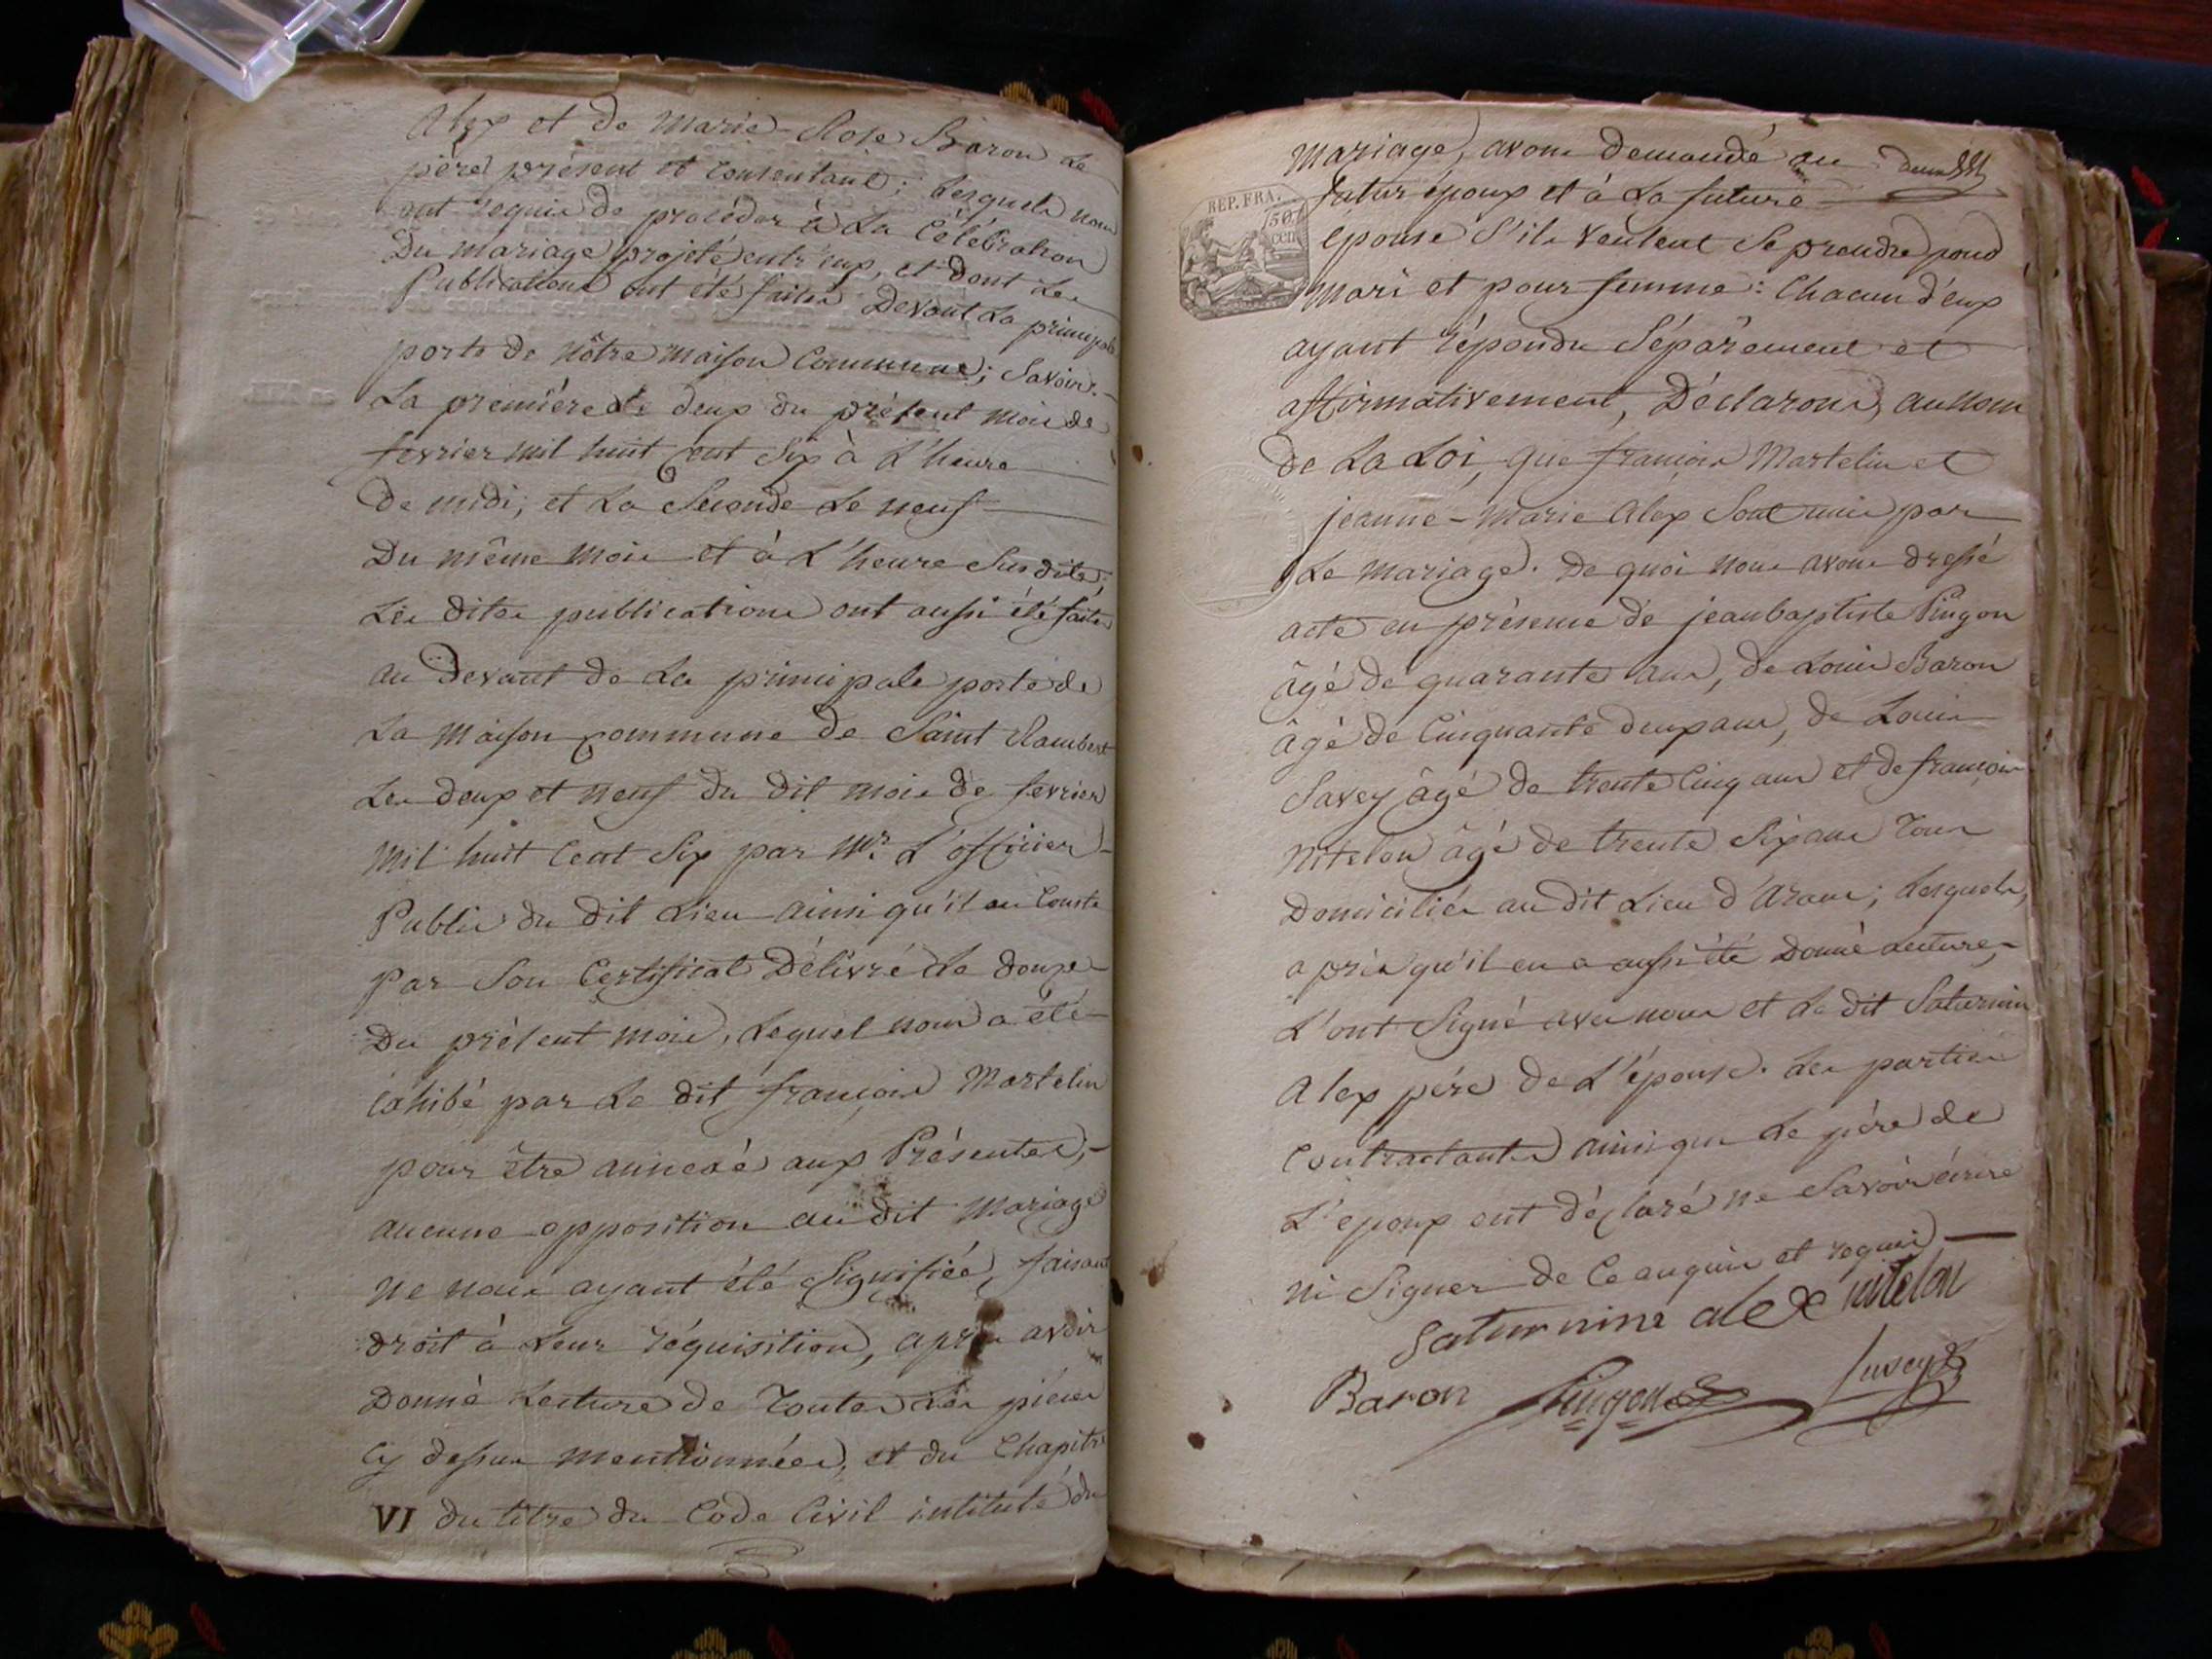 Alex et de Marie-Rose Baron Le
père présent et consentant; Lesquels nous
ont requis de procéder à La Célébration
Du mariage projeté entr'eux, et dont Les
Publications ont été faites Devant La principale
porte de nôtre maison Commune; Savoir:
La première Le deux du présent mois de
fevrier mil huit cent Six à L'heure
de midi; et La Seconde Le neuf
Du même mois et à L'heure Susdite;
Les dites publications ont aussi été faites
au Devant de La principale porte de
La maison commune de Saint Rambert
Les deux et neuf du dit mois de fevrier
mil huit Cent Six par Mr. L'officier
Public du dit Lieu ainsi qu'il en Conste
Par Son Certificat Délivré Le douze
Du présent mois, Lequel nous a été
éxhibé par Le dit françois Martelin
pour être annexé aux Présentes,
aucune opposition au dit Mariage
ne nous ayant été Signifiée, faisant
droit à Leur réquisition, après avoir
Donné Lecture de Toutes Les pièces
Cy dessus mentionnées, et du Chapitre
VI du titre du Code Civil intitulé du
Mariage, avons Demandé au
futur époux et à La future
REP. FRA.
50
épouse S'ils veulent Se prendre pour
mari et pour femme: Chacun d'eux
ayant répondu Séparément et
affirmativement, Déclarons, au nom
de La Loi, que françois Martelin et
jeanne-Marie Alex Sont unis par
Le mariage. De quoi nous avons dressé
acte en présence de jean baptiste Pingon
âgé de quarante ans, de Louis Baron
âgé de Cinquante deux ans, de Louis
Savey âgé de trente Cinq ans et de françois
Nitelon âgé de trente Six ans Tous
Domiciliés au dit Lieu d'Arans; Lesquels,
après qu'il en a aussi été Donné Lecture,
L'ont Signé avec nous et Le dit Saturnin
Alex père de L'épouse. Les parties
Contractantes ainsi que Le père de
L'epoux ont déclaré ne Savoir écrire
ni Signer de Ce enquis et requis
Saturnine alex nitelon
Baron Pingon Savey